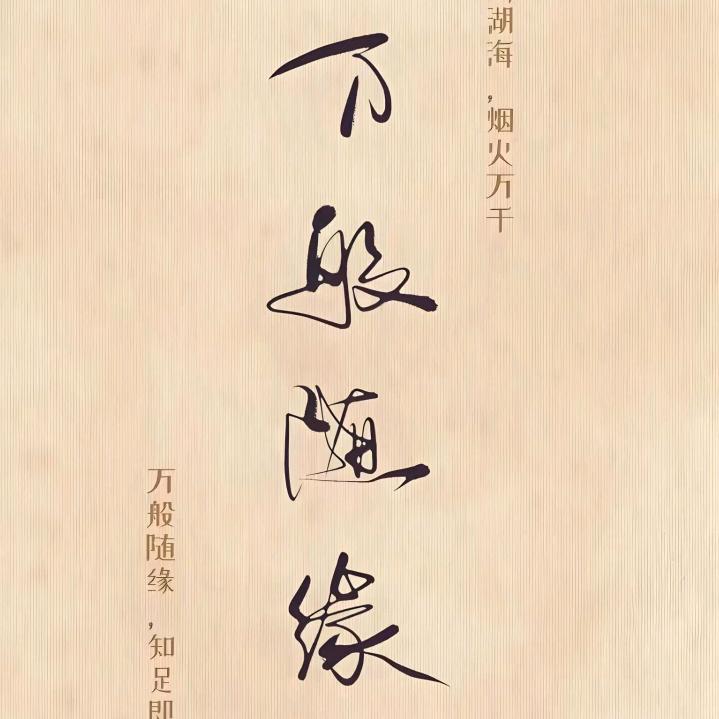 湖海，烟火万千
万般随缘
万般随缘，知足即